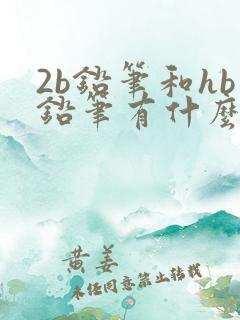 2b鉛筆和hb
鉛筆有什麼
黄姜
未经同意禁止转载